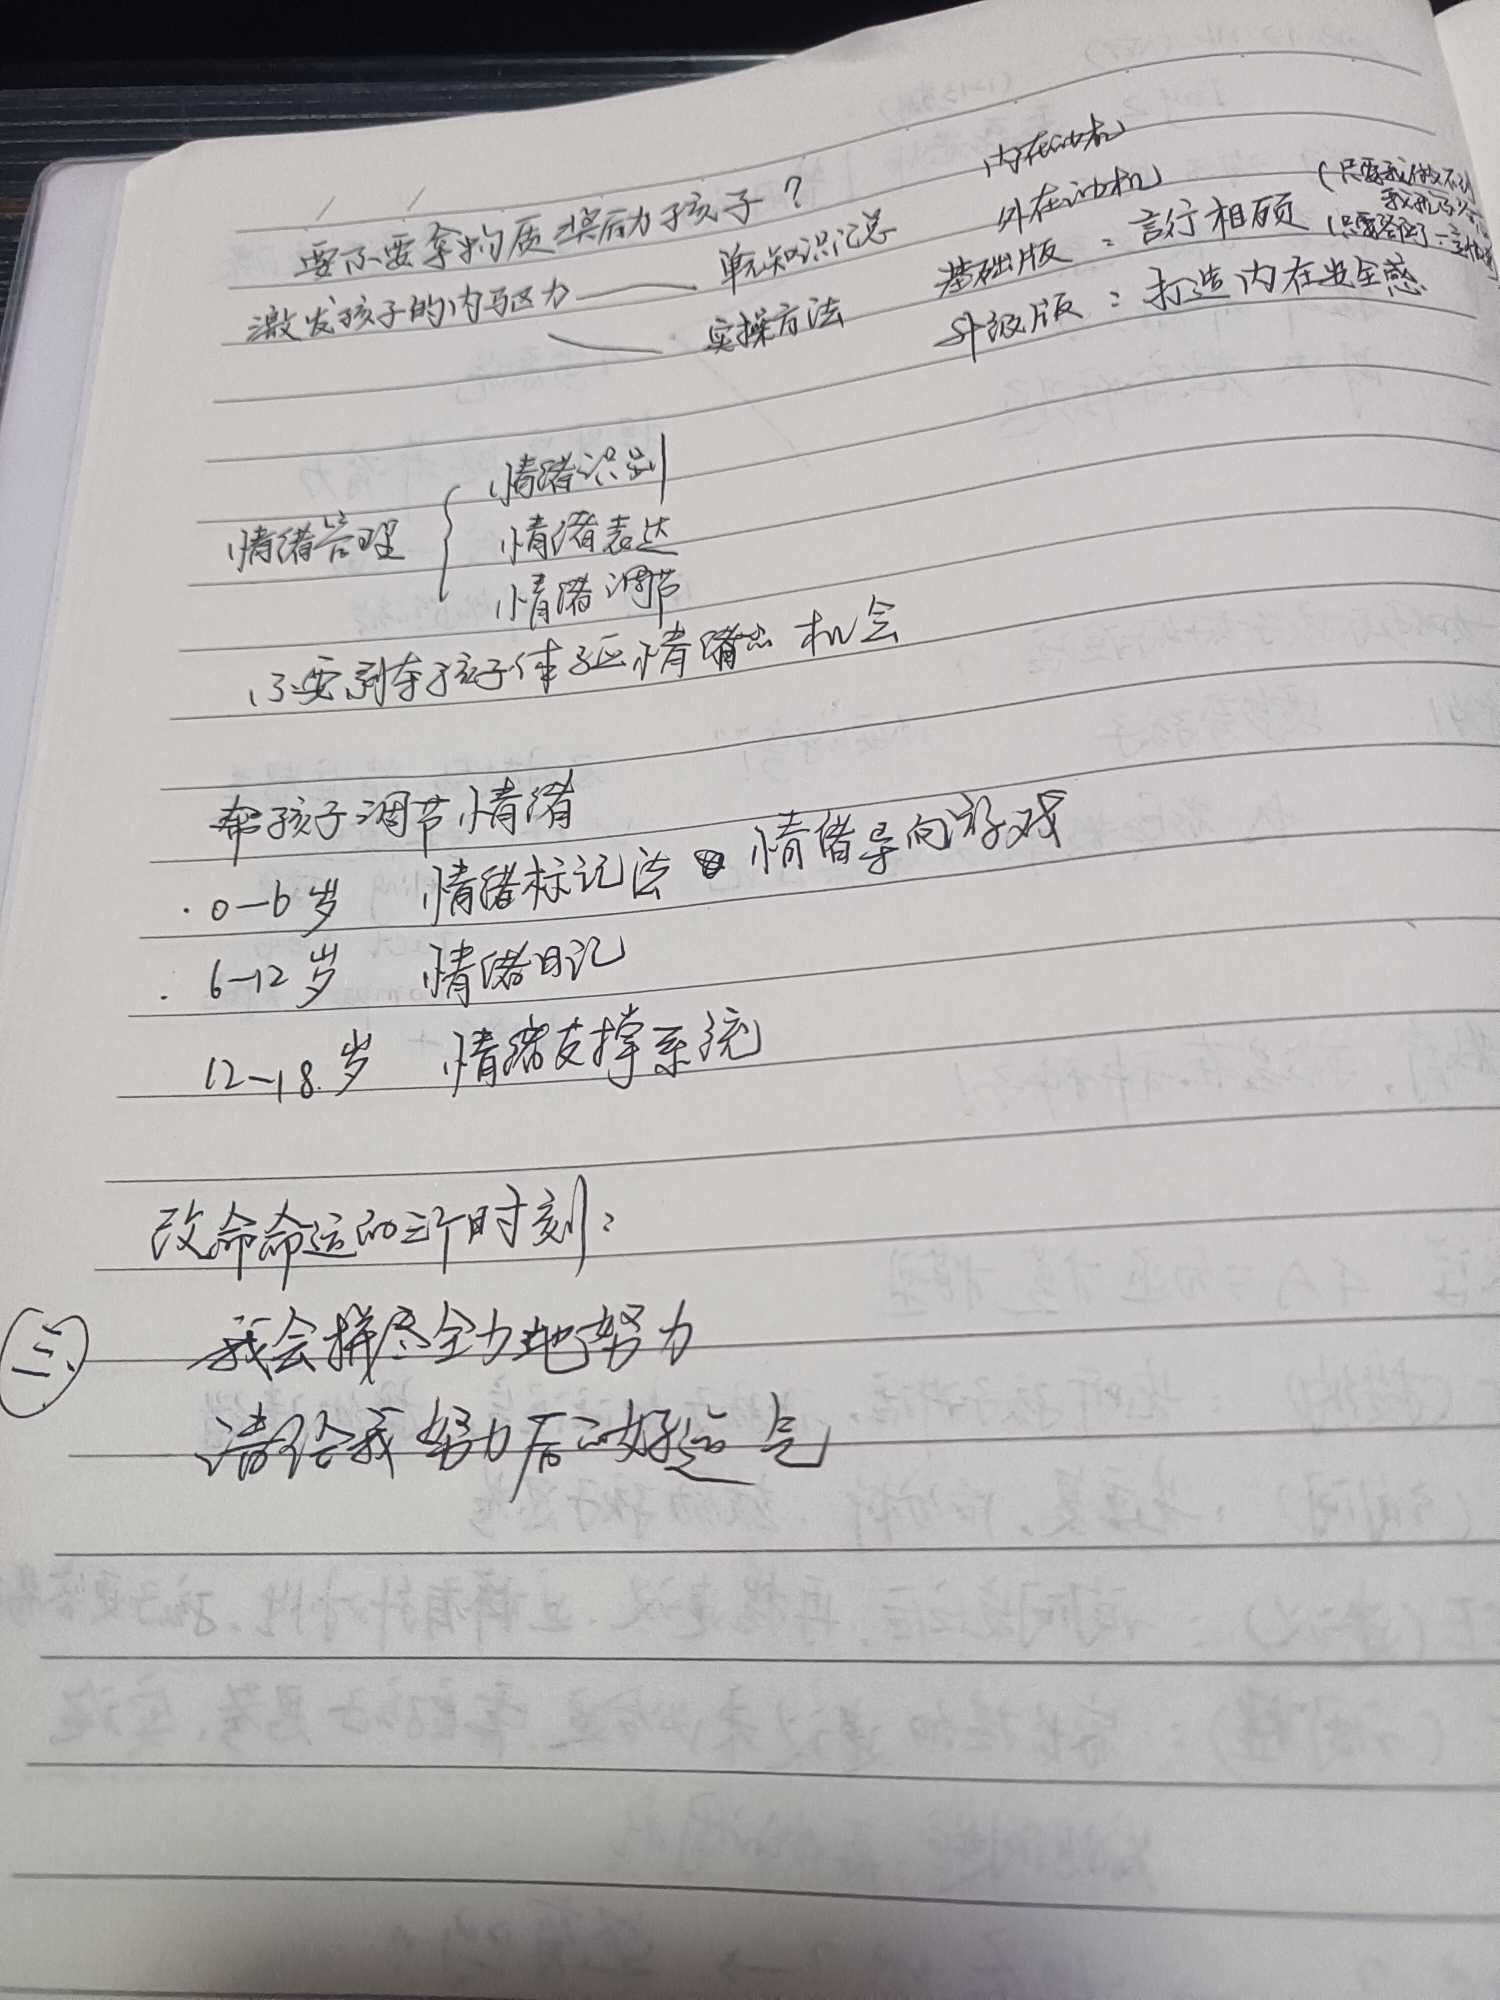 内在动机
要不要拿物质奖励孩子？ 外在动机
激发孩子的内驱力 —— 单元知识汇总 基础版：言行相顾 (只要我做不到 (只要答应
实操方法 升级版：打造内在安全感
情绪识别
情绪管理 { 情绪表达
情绪调节
不要剥夺孩子体验情绪的机会
帮孩子调节情绪
· 0-6岁 情绪标记法 情绪导向游戏
· 6-12岁 情绪日记
12-18岁 情绪支撑系统
改命命运的三个时刻：
三、 我会拼尽全力地努力
请给我努力后的好运气